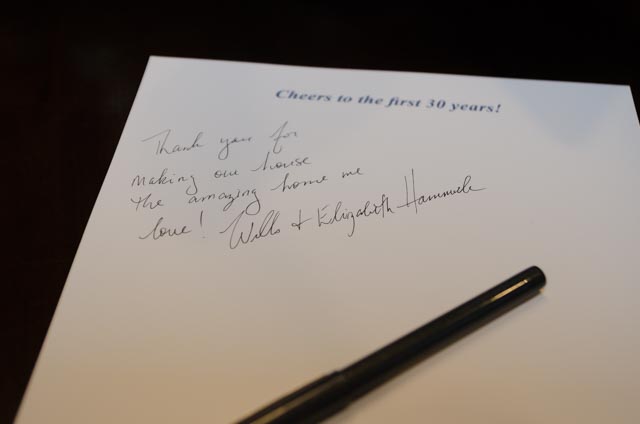 Cheers to the first 30 years!
Thank you for
making our house
the amazing home we
love! Wills + Elizabeth